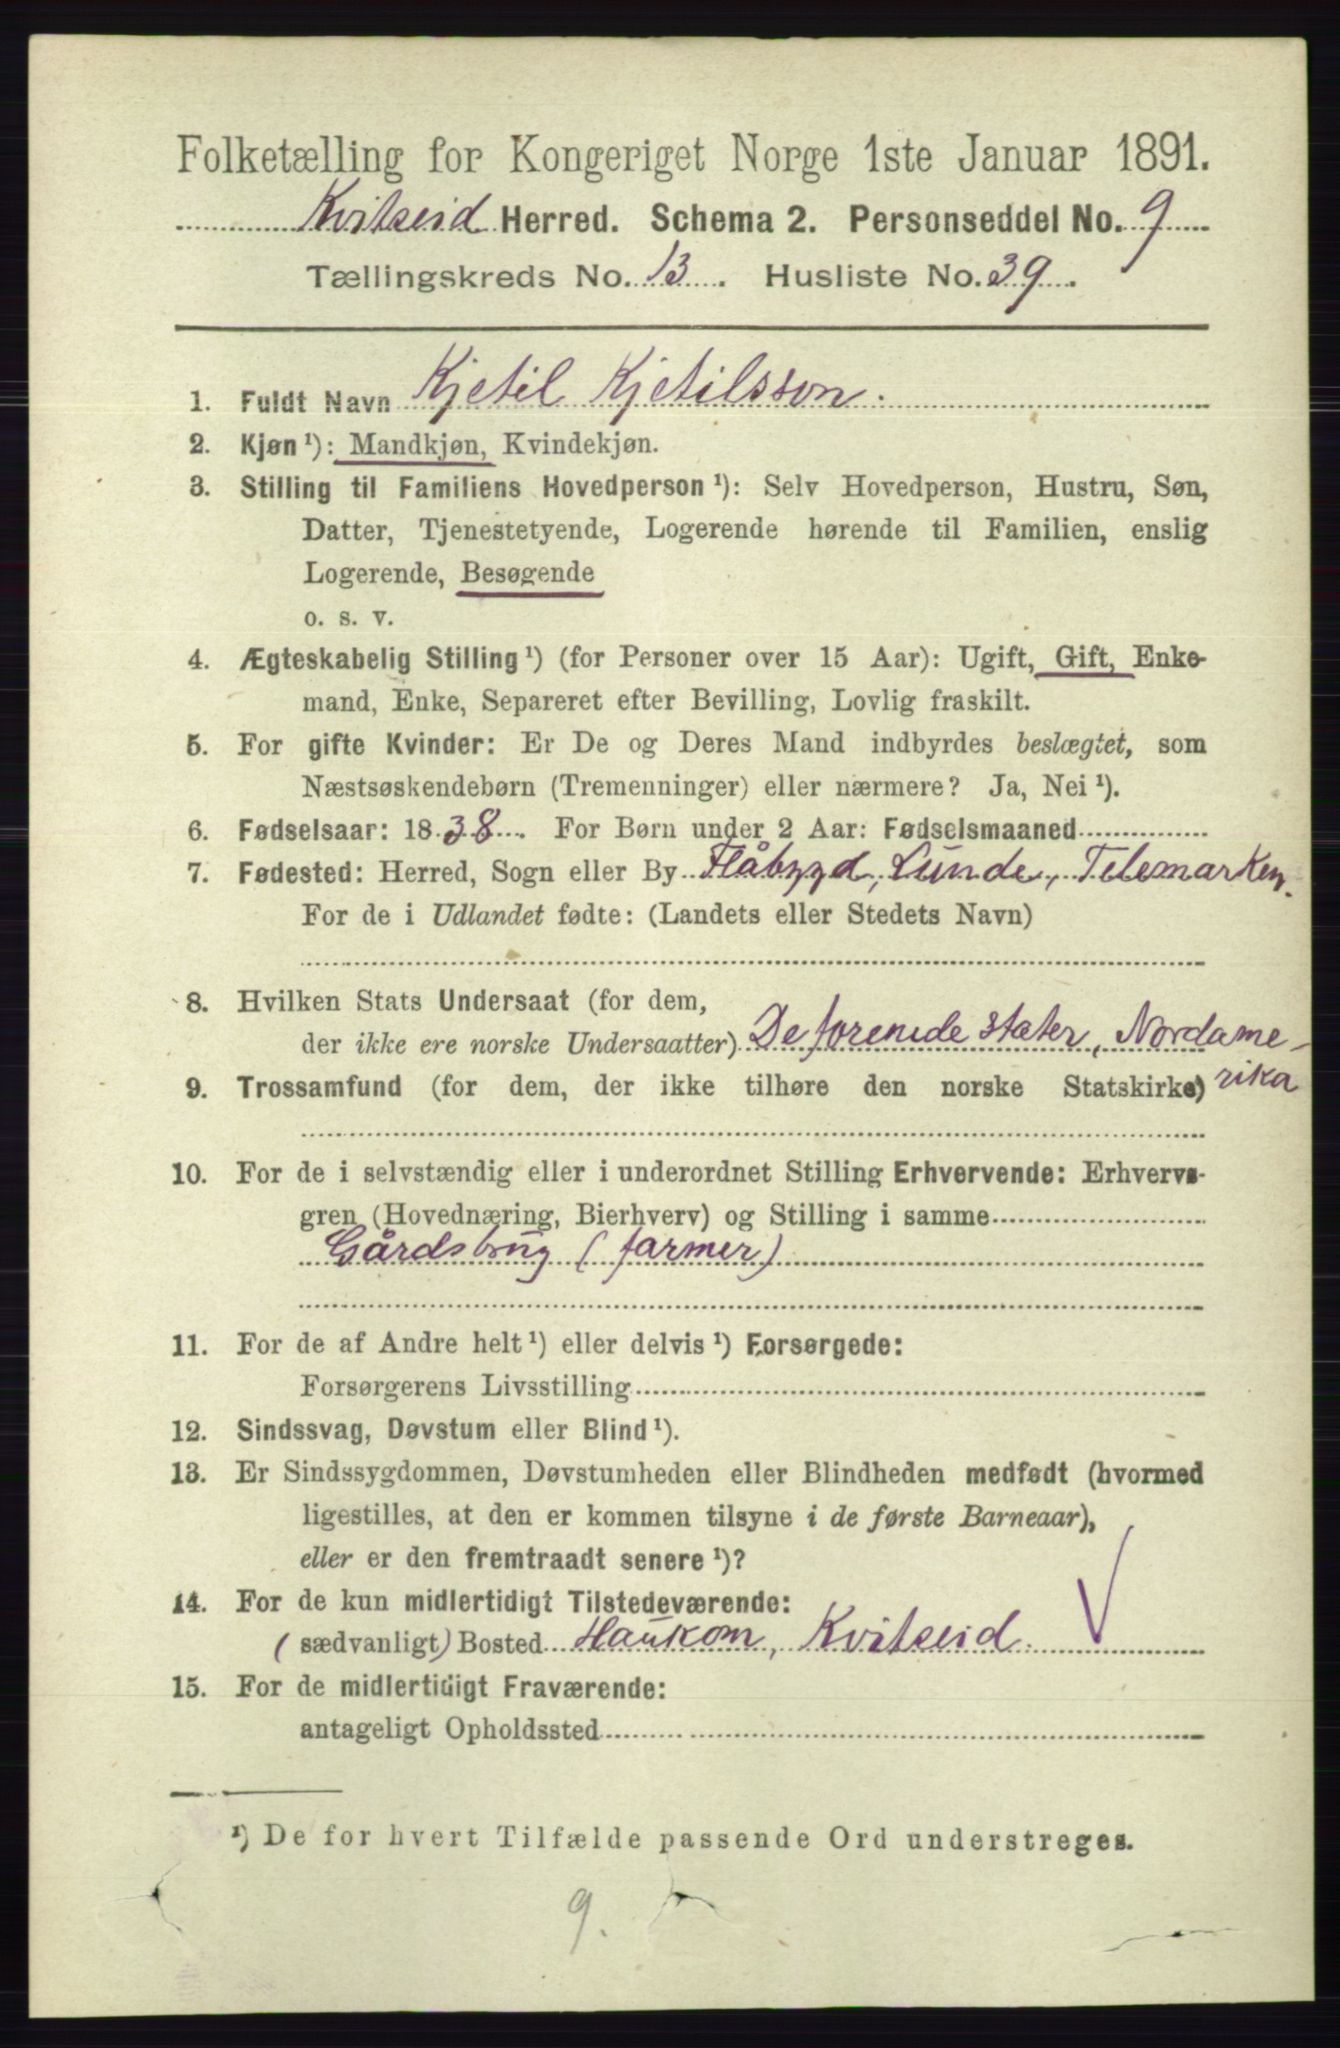 Folketælling for Kongeriget Norge 1ste Januar 1891.
Kvitseid Herred. Schema 2. Personseddel No. 9
Tællingskreds No. 13. Husliste No. 39.
1. Fuldt Navn Kjetil Kjetilsson.
2. Kjøn¹): Mandkjøn, Kvindekjøn.
3. Stilling til Familiens Hovedperson¹): Selv Hovedperson, Hustru, Søn,
Datter, Tjenestetyende, Logerende hørende til Familien, enslig
Logerende, Besøgende
o. s. v.
4. Ægteskabelig Stilling¹) (for Personer over 15 Aar): Ugift, Gift, Enke-
mand, Enke, Separeret efter Bevilling, Lovlig fraskilt.
5. For gifte Kvinder: Er De og Deres Mand indbyrdes beslægtet, som
Næstsøskendebørn (Tremenninger) eller nærmere? Ja, Nei¹).
6. Fødselsaar: 1838. For Børn under 2 Aar: Fødselsmaaned
7. Fødested: Herred, Sogn eller By Flåbygd, Lunde, Telemarken.
For de i Udlandet fødte: (Landets eller Stedets Navn)
8. Hvilken Stats Undersaat (for dem,
der ikke ere norske Undersaatter) De forenede stater, Nordame-
rika
9. Trossamfund (for dem, der ikke tilhøre den norske Statskirke)
10. For de i selvstændig eller i underordnet Stilling Erhvervende: Erhvervs-
gren (Hovednæring, Bierhverv) og Stilling i samme
Gårdsbrug (farmer)
11. For de af Andre helt¹) eller delvis¹) Forsørgede:
Forsørgerens Livsstilling
12. Sindssvag, Døvstum eller Blind¹).
13. Er Sindssygdommen, Døvstumheden eller Blindheden medfødt (hvormed
ligestilles, at den er kommen tilsyne i de første Barneaar),
eller er den fremtraadt senere¹)?
14. For de kun midlertidigt Tilstedeværende:
(sædvanligt) Bosted Haukom, Kvitseid.
15. For de midlertidigt Fraværende:
antageligt Opholdssted
¹) De for hvert Tilfælde passende Ord understreges.
9.